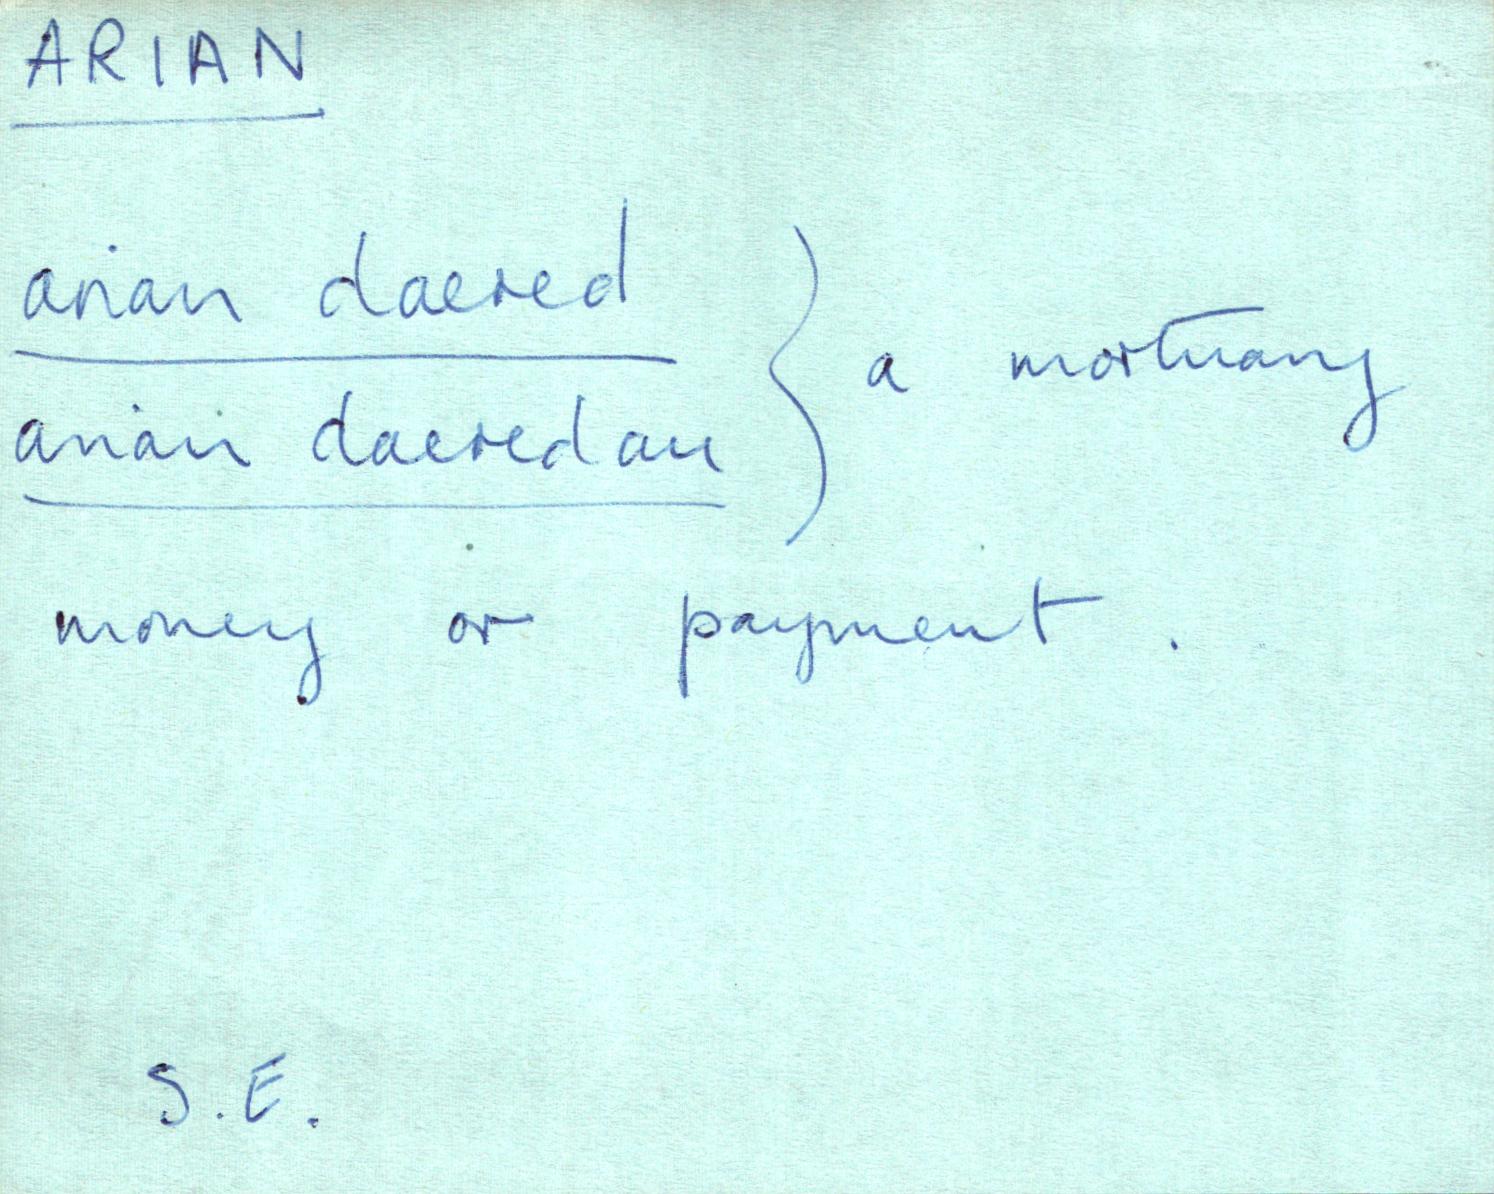 ARIAN
arian daered
arian daeredau } a mortuary
money or payment .
S.E.